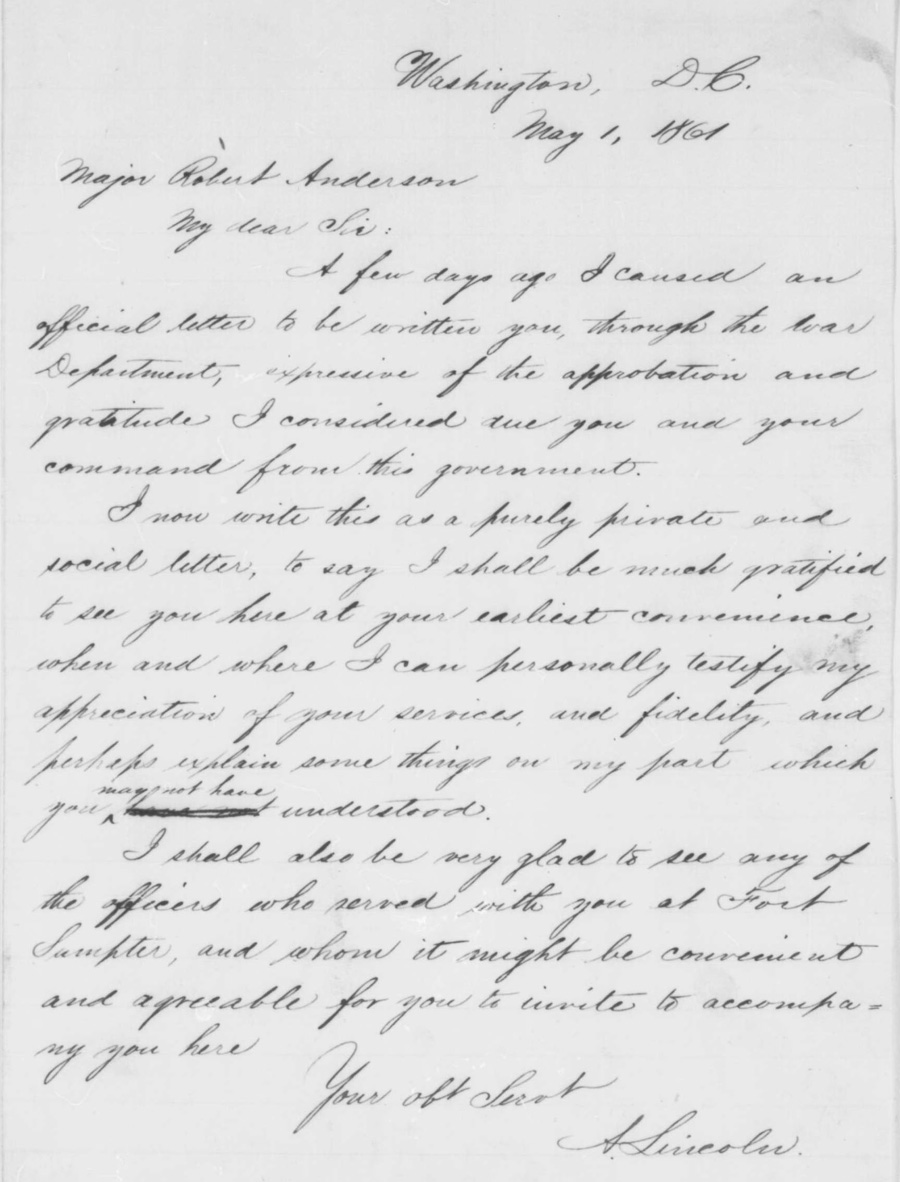 Washington, D.C.
May 1, 1861
Major Robert Anderson
My dear Sir:
A few days ago I caused an
official letter to be written you, through the War
Department, expressive of the approbation and
gratitude I considered due you and your
command from this government.
I now write this as a purely private and
social letter, to say I shall be much gratified
to see you here at your earliest convenience,
when and where I can personally testify my
appreciation of your services, and fidelity, and
perhaps explain some things on my part which
may not have
you ^ have not understood.
I shall also be very glad to see any of
the officers who served with you at Fort
Sumpter, and whom it might be convenient
and agreeable for you to invite to accompa=
ny you here
Your obt Servt
A. Lincoln.